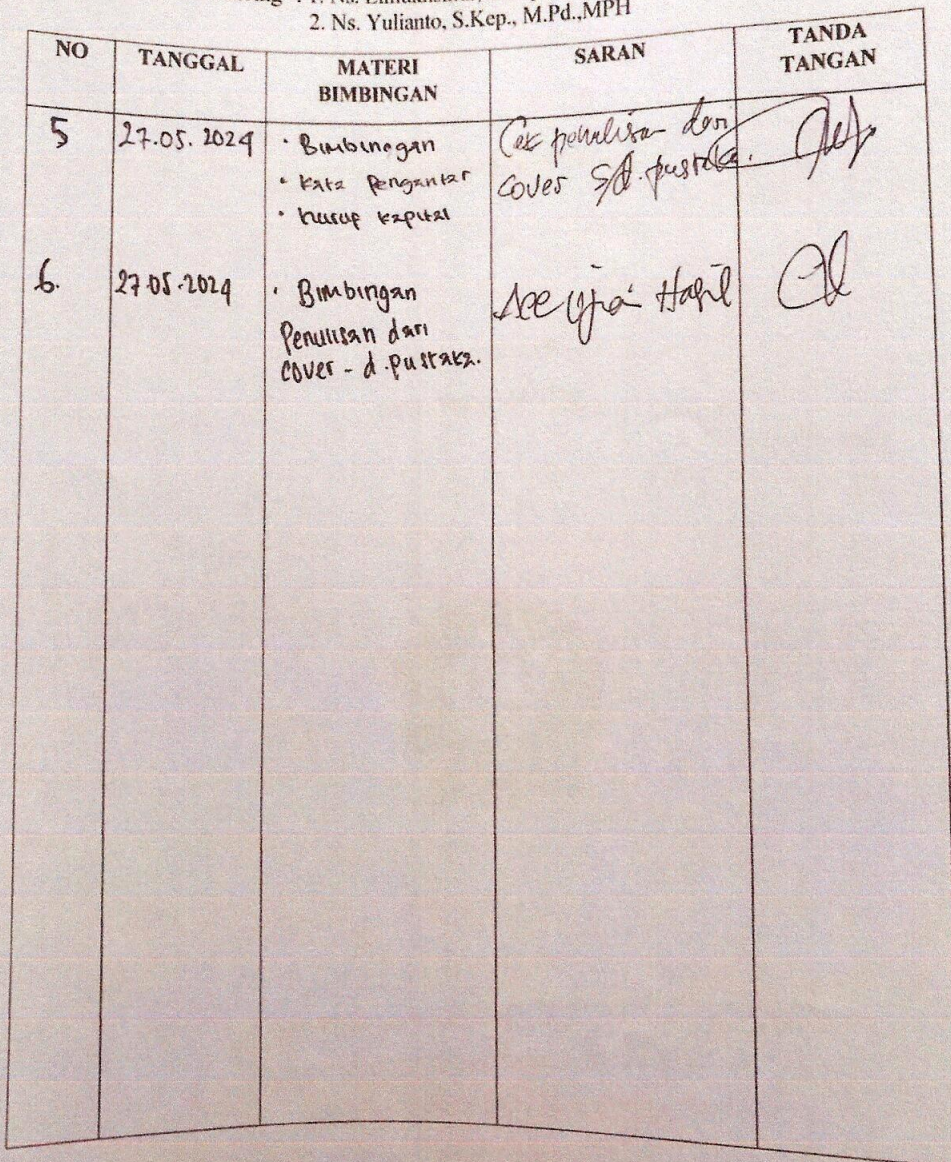 2. Ns. Yulianto, S.Kep., M.Pd.,MPH
NO TANGGAL MATERI BIMBINGAN SARAN TANDA TANGAN
5 27.05.2024
• Bimbinegan
• Kata Pengantar
• hurup kapital
Cek penulisan dari
cover s/d. pustaka.
6. 27.05.2024
• Bimbingan
Penulisan dari
cover - d.pustaka.
Acc ujian Hasil